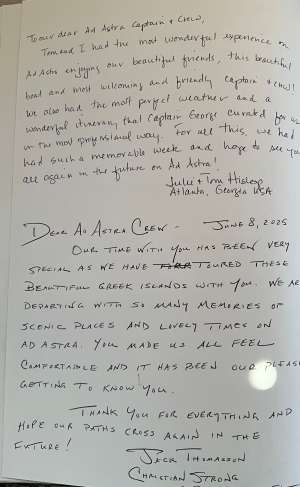 To our dear Ad Astra Captain & Crew,
Tom and I had the most wonderful experience on
Ad Astra enjoying our beautiful friends, this beautiful
boat and most welcoming and friendly captain & crew!
We also had the most perfect weather and a
wonderful itinerary that Captain George curated for us
in the most professional way. For all this, we had
had such a memorable week and hope to see you
all again in the future on Ad Astra!
Julie & Tom Hislop
Atlanta, Georgia USA
DEAR AD ASTRA CREW - JUNE 8, 2025
OUR TIME WITH YOU HAS BEEN VERY
SPECIAL AS WE HAVE TOURED THESE
BEAUTIFUL GREEK ISLANDS WITH YOU. WE AR
DEPARTING WITH SO MANY MEMORIES OF
SCENIC PLACES AND LOVELY TIMES ON
AD ASTRA. YOU MADE US ALL FEEL
COMFORTABLE AND IT HAS BEEN OUR PLEAS
GETTING TO KNOW YOU.
THANK YOU FOR EVERYTHING AND
HOPE OUR PATHS CROSS AGAIN IN THE
FUTURE!
JACK THOMASSON
CHRISTIAN STRONG